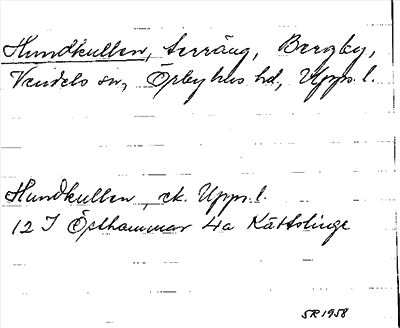 Hundkullen, terräng, Bergby,
Vendels sn, Örbyhus hd, Upps. l.
Hundkullen, ek. Upps. l.
12 I Östhammar 4a Kättslinge
SR 1958